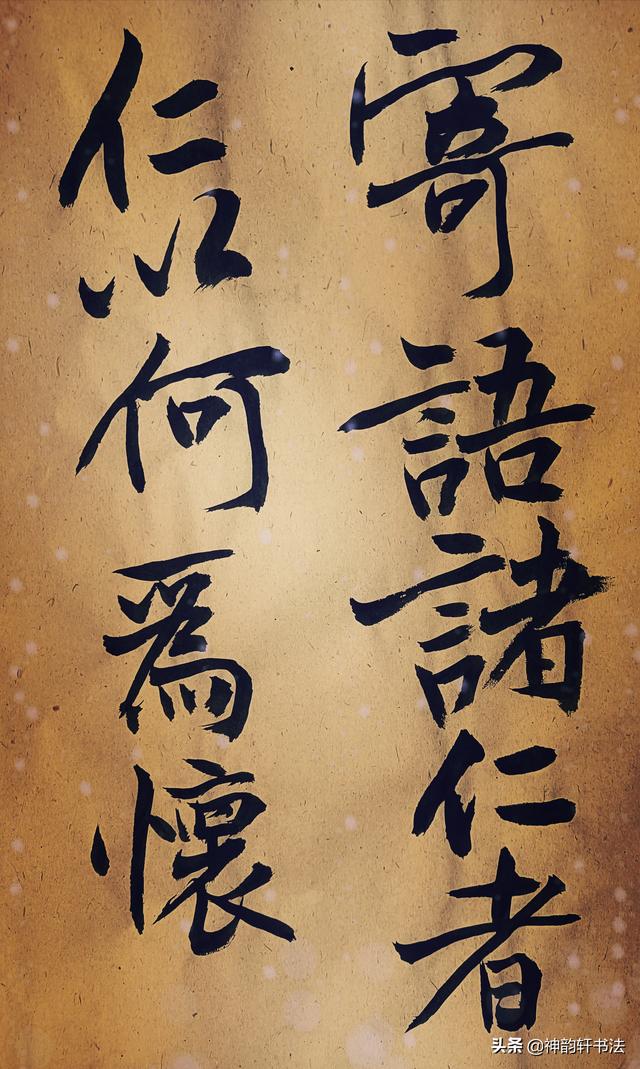 寄語諸仁者
仁以何為懷
头条 @神韵轩书法